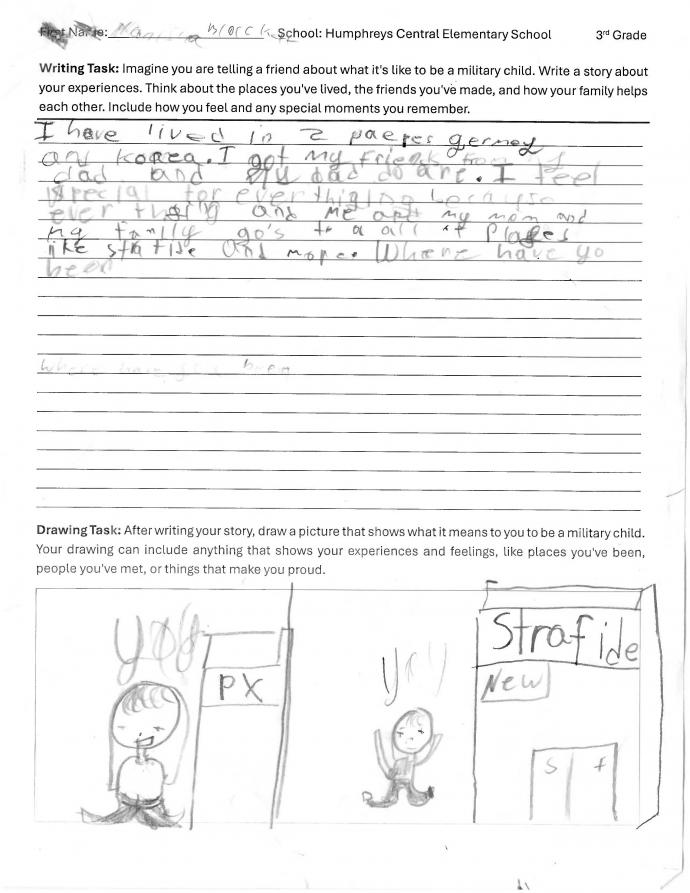 First Name: Block School: Humphreys Central Elementary School 3rd Grade
Writing Task: Imagine you are telling a friend about what it's like to be a military child. Write a story about
your experiences. Think about the places you've lived, the friends you've made, and how your family helps
each other. Include how you feel and any special moments you remember.
I have lived in 2 paepes germey
and korea. I got my friends from my
dad and my dad do are. I feel
special for ever thiging because
ever thing and me and my mom and
my family go's to a all of Plases
like strfide and more. Where have yo
been
where have you been
Drawing Task: After writing your story, draw a picture that shows what it means to you to be a military child.
Your drawing can include anything that shows your experiences and feelings, like places you've been,
people you've met, or things that make you proud.
yay
PX
yay
Strafide
New
S f